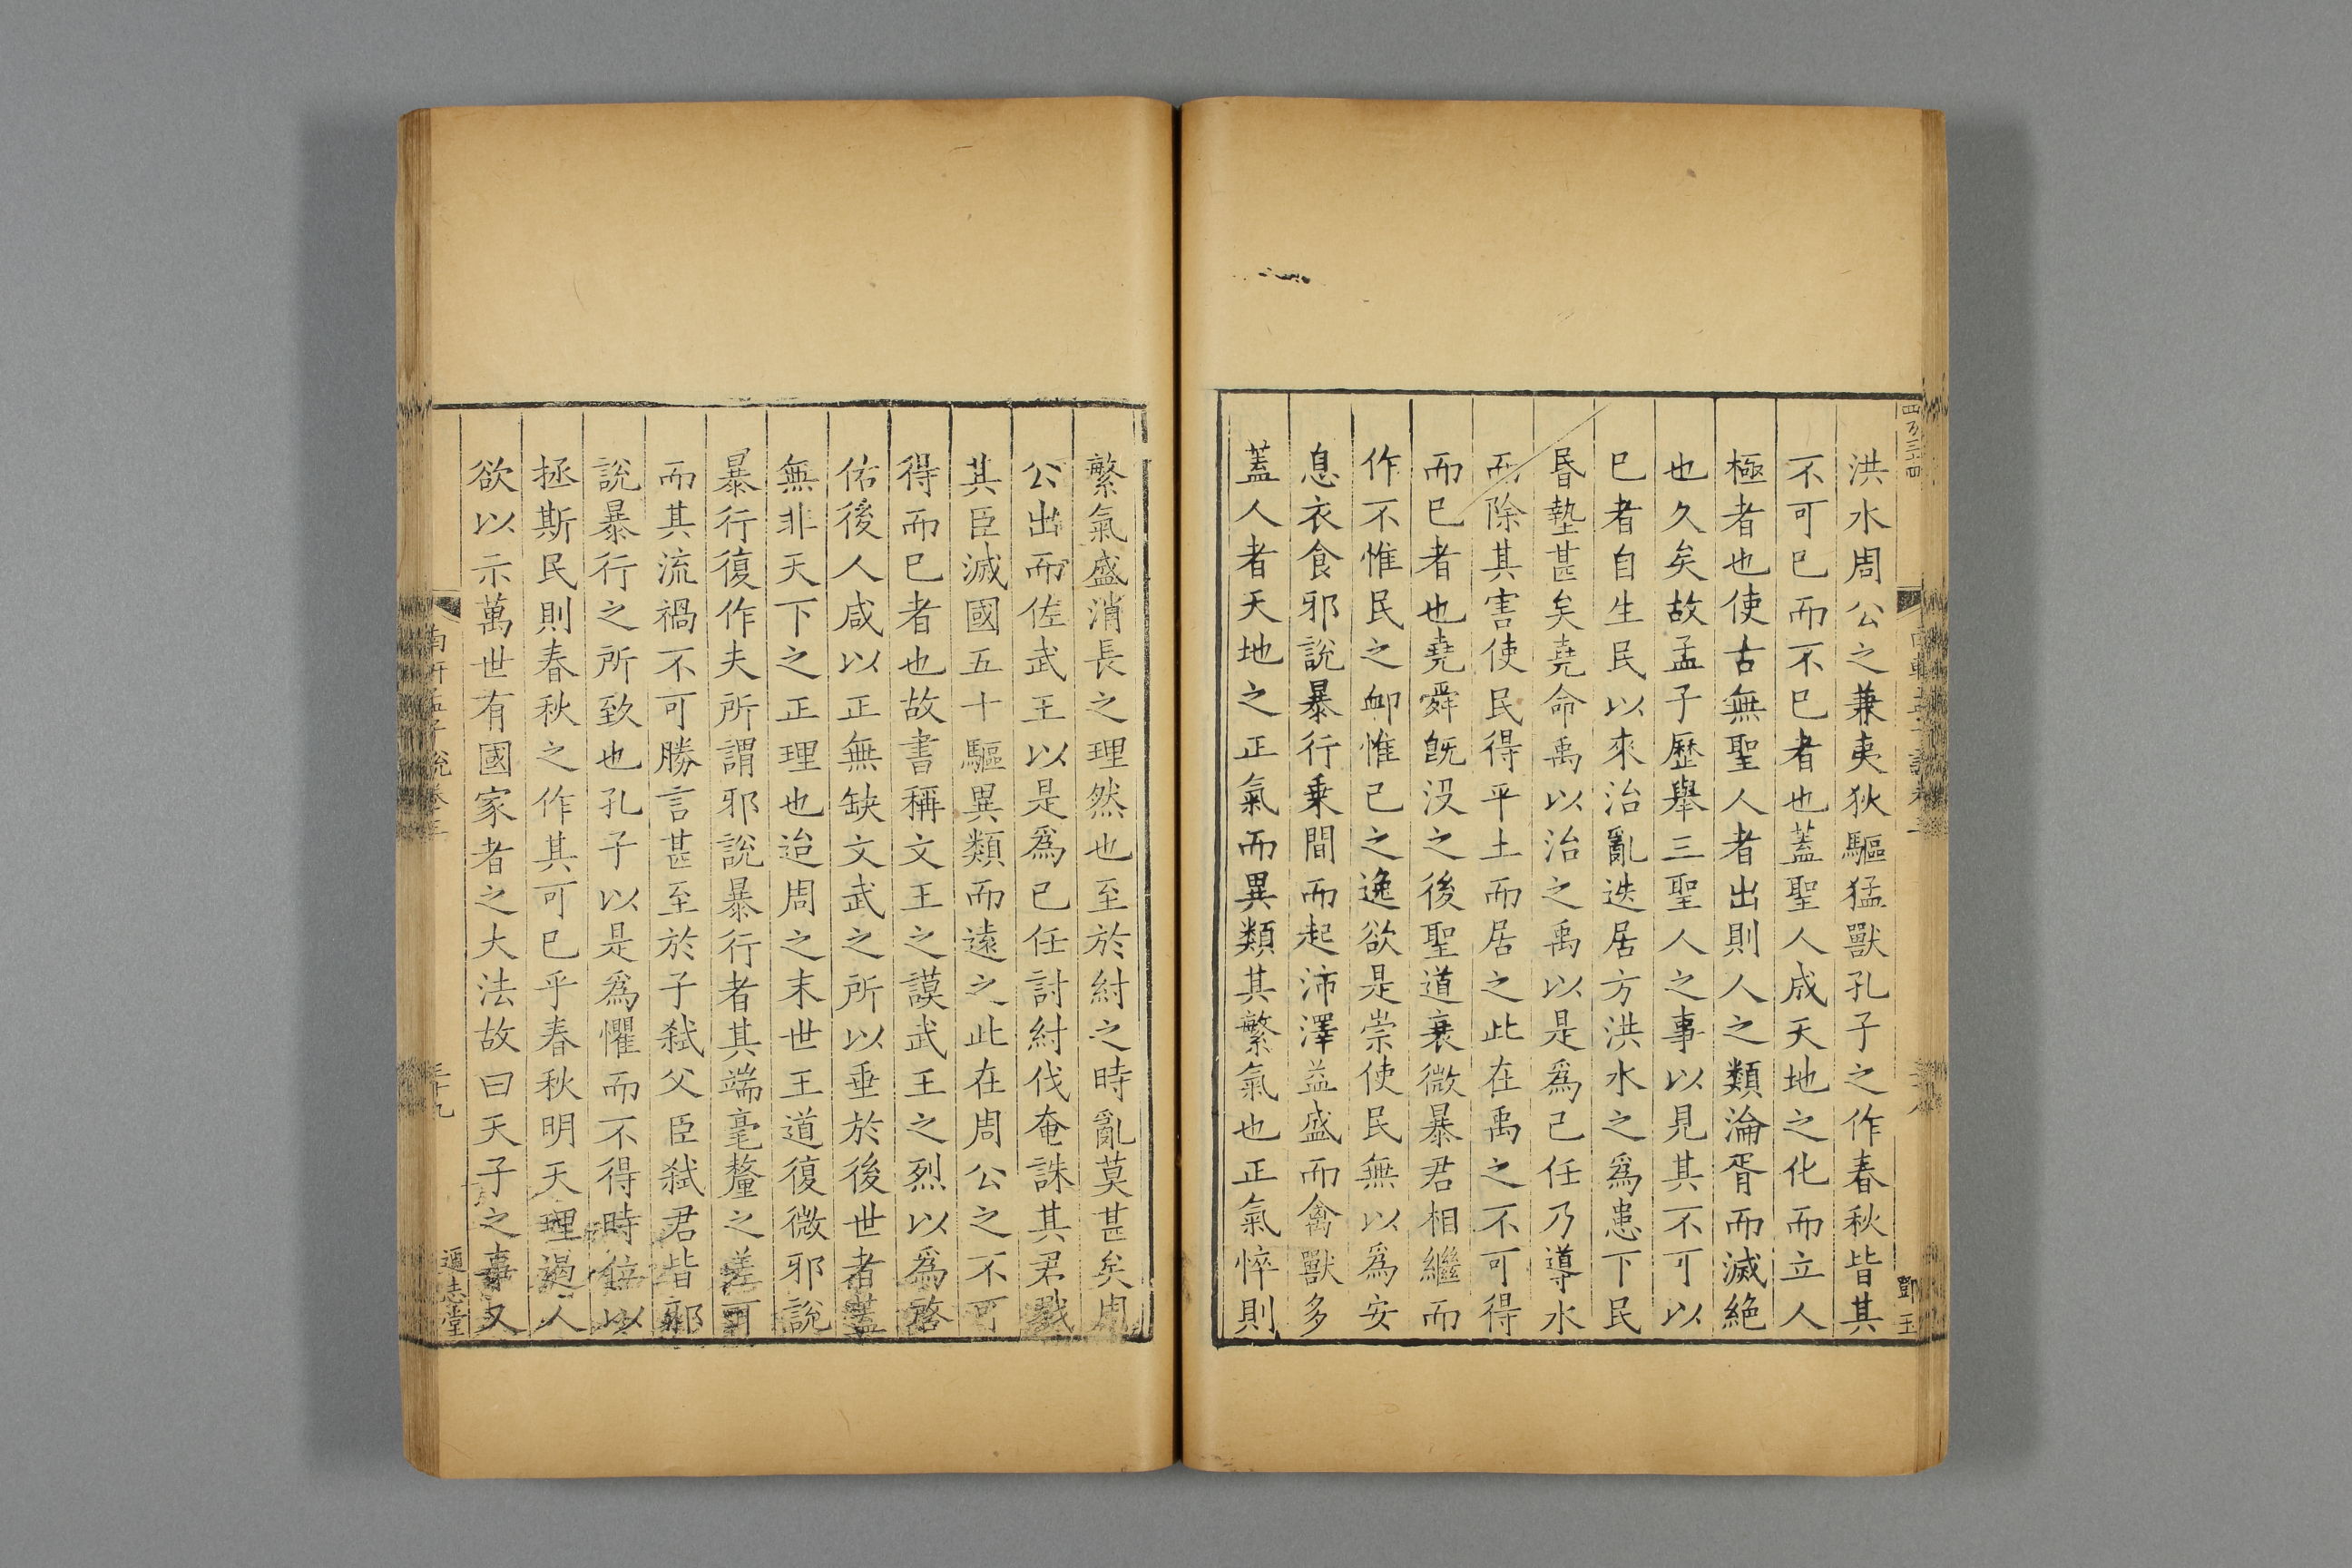 洪水周公之兼夷狄驅猛獸孔子之作春秋皆其
不可已而不已者也蓋聖人成天地之化而立人
極者也使古無聖人者出則人之類淪胥而滅絕
也久矣故孟子歷舉三聖人之事以見其不可以
已者自生民以來治亂迭居方洪水之爲患下民
昏墊甚矣堯命禹以治之禹以是爲己任乃導水
而除其害使民得平土而居之此在禹之不可得
而已者也堯舜旣沒之後聖道衰微暴君相繼而
作不惟民之卹惟己之逸欲是崇使民無以爲安
息衣食邪說暴行乗間而起沛澤益盛而禽獸多
蓋人者天地之正氣而異類其繁氣也正氣悴則
鄧玉
繁氣盛消長之理然也至於紂之時亂莫甚矣周
公出而佐武王以是爲己任討紂伐奄誅其君戮
其臣滅國五十驅異類而遠之此在周公之不可
得而已者也故書稱文王之謨武王之烈以爲啓
佑後人咸以正無缺文武之所以垂於後世者蓋
無非天下之正理也迨周之末世王道復微邪說
暴行復作夫所謂邪說暴行者其端毫釐之差耳
而其流禍不可勝言甚至於子弒父臣弒君皆邪
說暴行之所致也孔子以是爲懼而不得時位以
拯斯民則春秋之作其可已乎春秋明天理遏人
欲以示萬世有國家者之大法故曰天子之事又
南軒孟子說卷三
三十九
通志堂